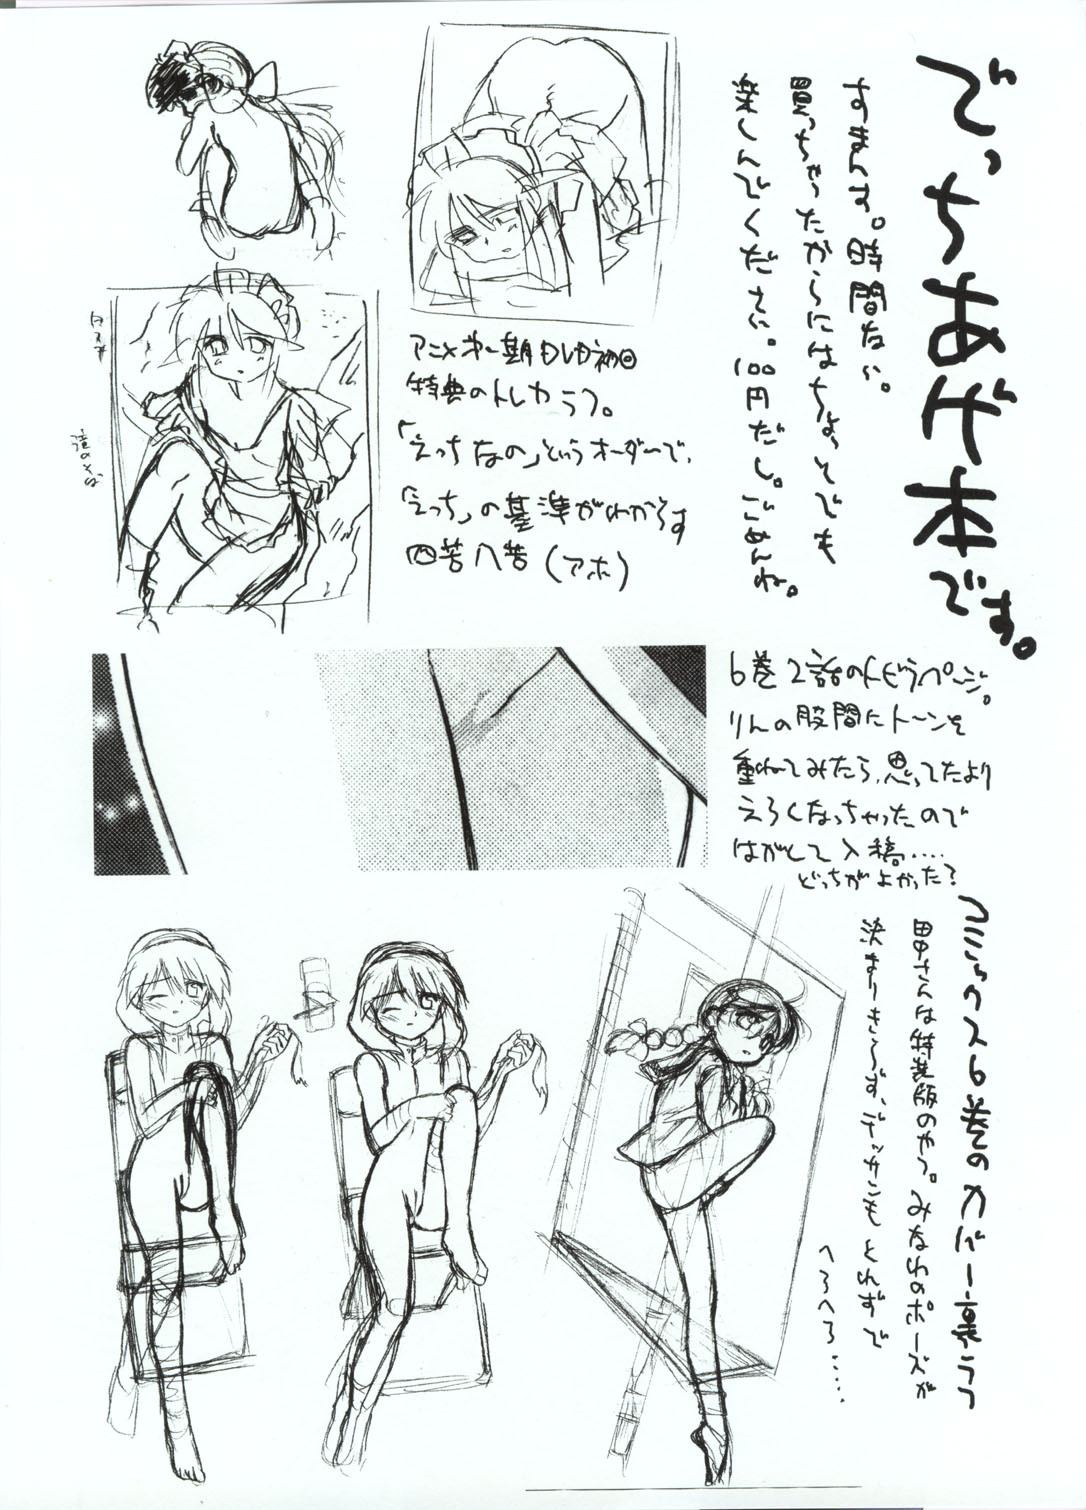 でっちあげ本です。
すまんす。時間ない。
買っちゃったからにはちょっとでも
楽しんでください。100円だし。ごめんね。
アニメ第一期もしか初回
特典のトレカラフ。
「えっちなの」というオーダーで、
「えっち」の基準がわからず
四苦八苦(アホ)
滝のそば
6巻2話のトビラページ。
りんの股間にトーンを
重ねてみたら、思ってたより
えろくなっちゃったので
はがして入稿....
どっちがよかった?
コミックス6巻のカバー裏ラフ
田中さんは特装版のやつ。みなわのポーズが
決まりきらず、デッサンもとれずで
へろへろ.....